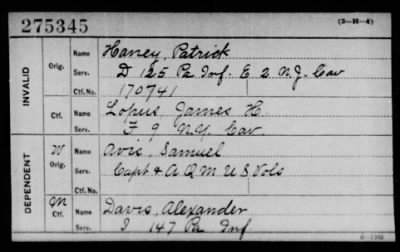 275345
(3-H-4)
INVALID
Orig.
Name Haney, Patrick
Serv. D 125 Pa Inf. E 2 N.J. Cav
Ctf. No. 170741
Ctf.
Name Lopus, James H.
Serv. F 9 N.Y. Cav
DEPENDENT
W
Orig.
Name Avis, Samuel
Serv. Capt & A Q M U S Vols
Ctf. No.
M
Ctf.
Name Davis, Alexander
Serv. I 147 Pa Inf